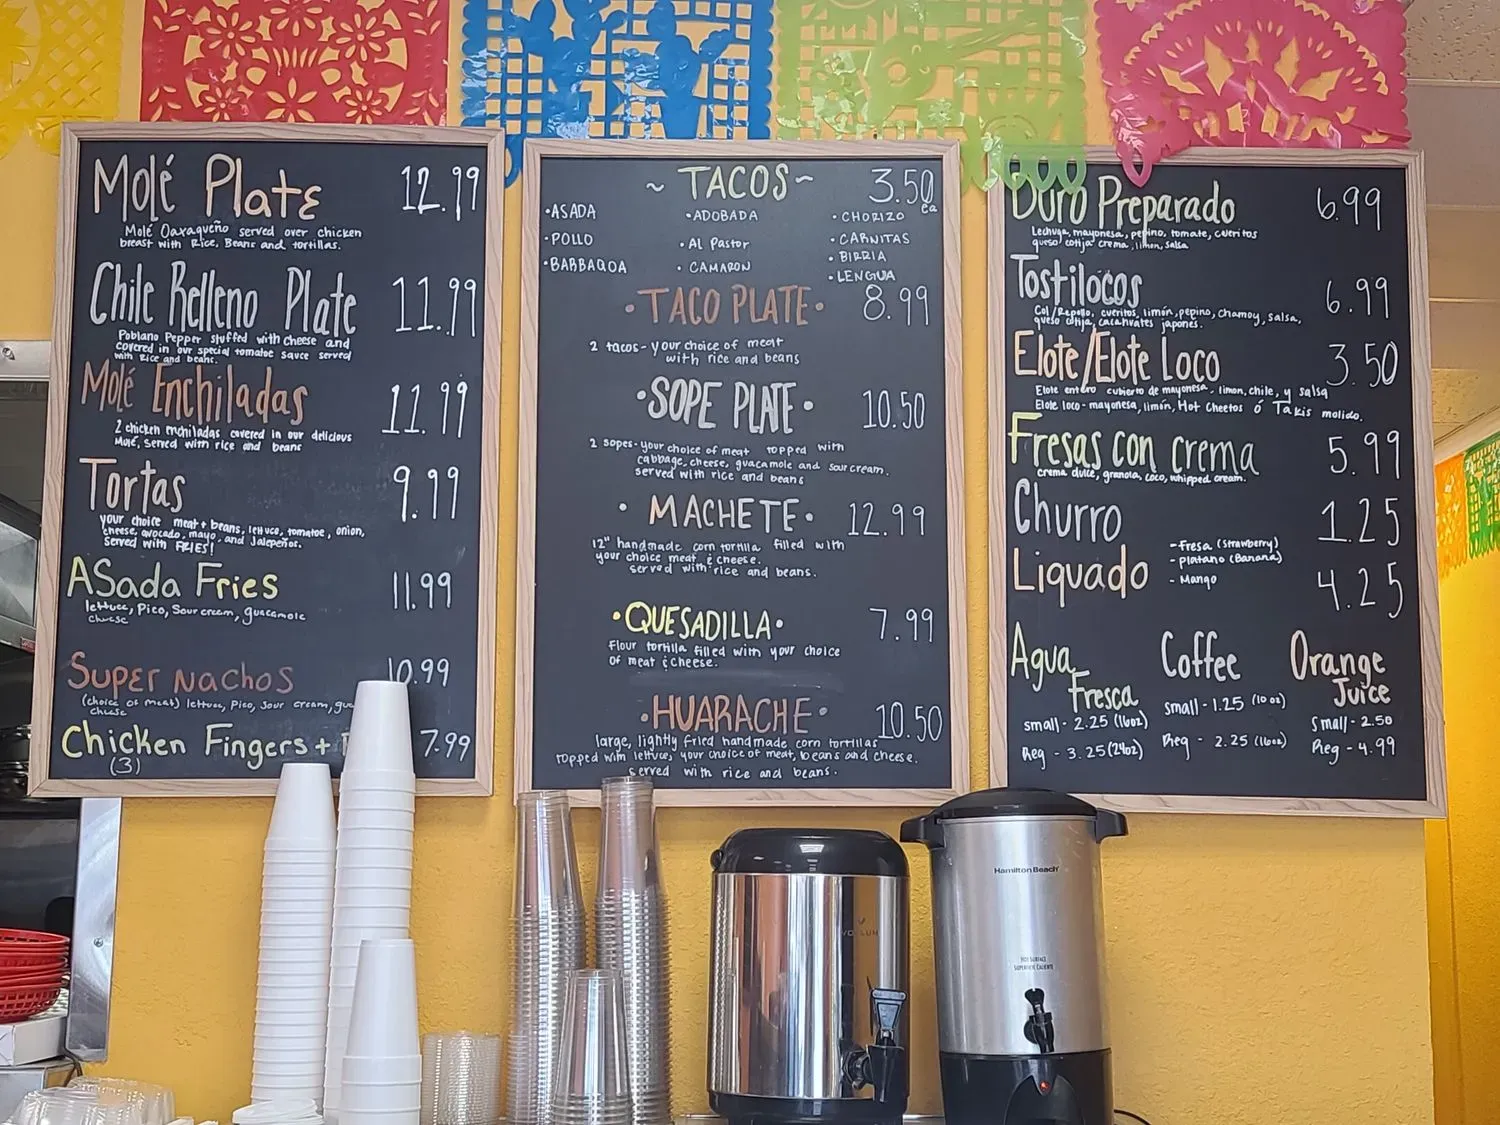 Molé Plate 12.99
Molé Oaxaqueño served over chicken
breast with Rice, Beans and tortillas.
Chile Relleno Plate 11.99
Poblano Pepper stuffed with cheese and
covered in our special tomatoe sauce served
with Rice and beans.
Molé Enchiladas 11.99
2 chicken enchiladas covered in our delicious
Molé, served with rice and beans
Tortas 9.99
your choice meat + beans, lettuce, tomatoe, onion,
cheese, avocado, mayo, and Jalepeños.
Served with FRIES!
ASada Fries 11.99
lettuce, Pico, Sour cream, guacamole
cheese
Super Nachos 10.99
(choice of meat) lettuce, Pico, sour cream, gua
cheese
Chicken Fingers + 7.99
(3)
~ TACOS ~ 3.50 ea
•ASADA •ADOBADA •CHORIZO
•POLLO •Al Pastor •CARNITAS
•BIRRIA
•BARBAQOA •CAMARON
•LENGUA
•TACO PLATE• 8.99
2 tacos - your choice of meat
with rice and beans
•SOPE PLATE• 10.50
2 sopes - your choice of meat topped with
cabbage, cheese, guacamole and sour cream.
served with rice and beans
•MACHETE• 12.99
12" handmade corn tortilla filled with
your choice meat & cheese.
served with rice and beans.
•QUESADILLA• 7.99
Flour tortilla filled with your choice
of meat & cheese.
•HUARACHE• 10.50
large, lightly fried handmade corn tortillas
topped with lettuce, your choice of meat, beans and cheese.
served with rice and beans.
Duro Preparado 6.99
Lechuga, mayonesa, pepino, tomate, cueritos
queso cotija crema, limon, salsa
Tostilocos 6.99
Col/Repollo, cueritos, limón, pepino, chamoy, salsa,
queso cotija, cacahuates japones.
Elote/Elote Loco 3.50
Elote entero cubierto de mayonesa, limon, chile, y salsa
Elote loco - mayonesa, limón, Hot Cheetos ó Takis molido.
Fresas con crema 5.99
crema dulce, granola, coco, whipped cream.
Churro 1.25
Liquado 4.25
- Fresa (Strawberry)
- Platano (Banana)
- Mango
Agua Fresca
small - 2.25 (16oz)
Reg - 3.25 (24oz)
Coffee
small - 1.25 (10 oz)
Reg - 2.25 (16oz)
Orange Juice
Small - 2.50
Reg - 4.99
Hamilton Beach
HOT SURFACE
SUPERFICIE CALIENTE